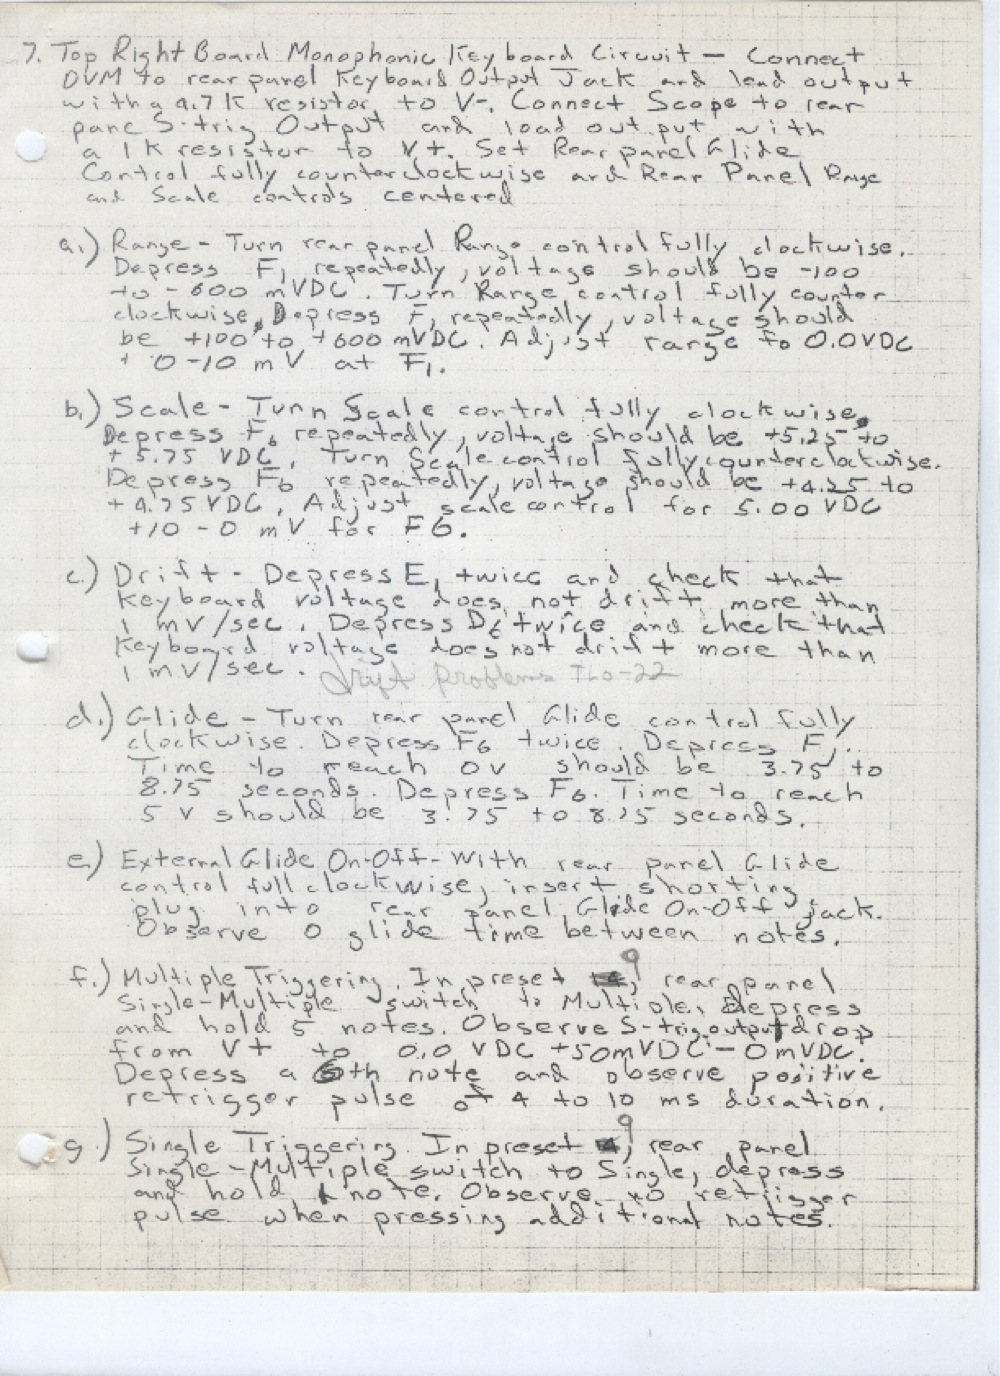 7. Top Right Board Monophonic Keyboard Circuit — Connect
DVM to rear panel Keyboard Output Jack and load output
with a 4.7 K resistor to V-. Connect Scope to rear
pane S-trig Output and load out put with
a 1 K resistor to V+. Set Rear panel Glide
Control fully counterclockwise and Rear Panel Range
and Scale controls centered
a.) Range - Turn rear panel Range control fully clockwise.
Depress F1 repeatedly, voltage should be -100
to -600 mVDC. Turn Range control fully counter
clockwise. Depress F1 repeatedly, voltage should
be +100 to +600 mVDC. Adjust range to 0.0 VDC
+ 0 -10 mV at F1.
b.) Scale - Turn Scale control fully clockwise.
Depress F6 repeatedly, voltage should be +5.25 to
+ 5.75 VDC. Turn Scale control fully counterclockwise.
Depress F6 repeatedly, voltage should be +4.25 to
+ 4.75 VDC. Adjust scale control for 5.00 VDC
+10 - 0 mV for F6.
c.) Drift - Depress E1 twice and check that
Keyboard voltage does not drift more than
1 mV/sec. Depress D6 twice and check that
Keyboard voltage does not drift more than
1 mV/sec. Drift Problems TL0-22
d.) Glide - Turn rear panel Glide control fully
clockwise. Depress F6 twice. Depress F1.
Time to reach 0v should be 3.75 to
8.75 seconds. Depress F6. Time to reach
5 v should be 3.75 to 8.75 seconds.
e.) External Glide On-Off - With rear panel Glide
control full clockwise, insert shorting
plug into rear panel Glide On-Off jack.
Observe 0 glide time between notes.
f.) Multiple Triggering. In preset 9, rear panel
Single-Multiple switch to Multiple, depress
and hold 5 notes. Observe S-trig output drop
from V+ to 0.0 VDC +50mVDC - 0mVDC.
Depress a 6th note and observe positive
retrigger pulse of 4 to 10 ms duration.
g.) Single Triggering. In preset 9, rear panel
Single-Multiple switch to Single, depress
and hold 1 note. Observe no retrigger
pulse when pressing additional notes.